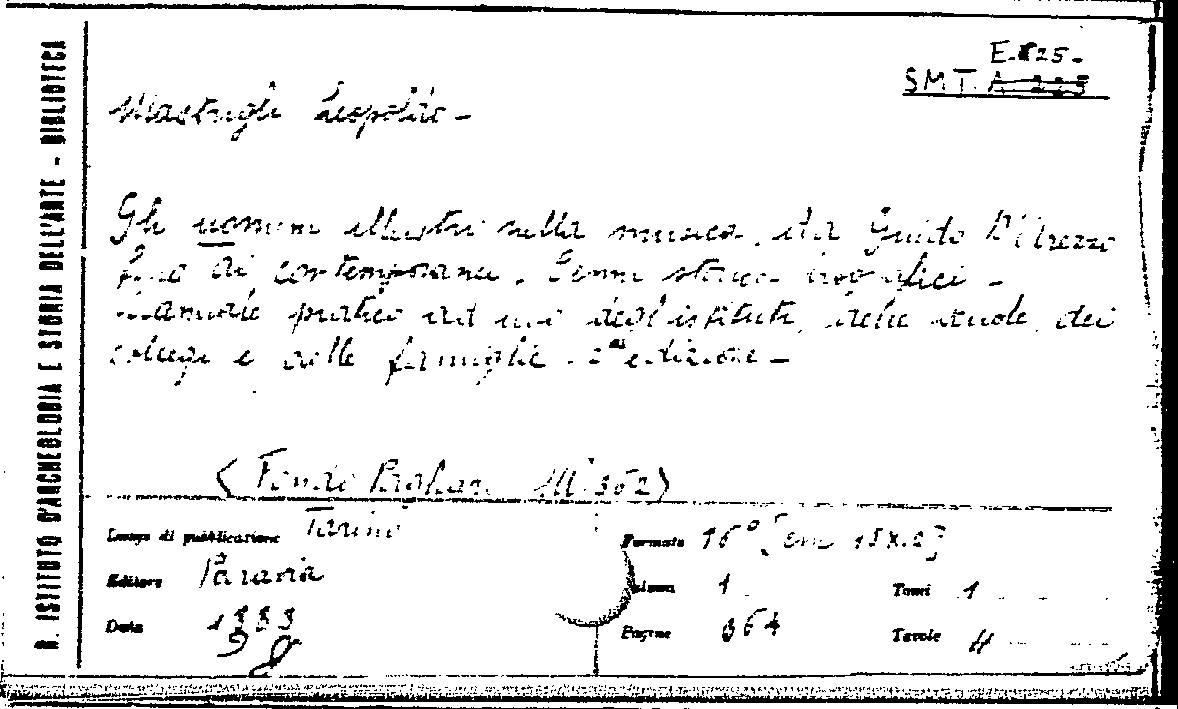 R. ISTITUTO D'ARCHEOLOGIA E STORIA DELL'ARTE - BIBLIOTECA
E. 25.
SMT. A 225
Mastrigli Leopoldo -
Gli uomini illustri nella musica, da Guido D'Arezzo
fino ai contemporanei. Cenni storico biografici -
Manuale pratico ad uso degl'istituti, delle scuole, dei
collegi e delle famiglie. 2ª edizione -
(Fondo M. 362)
Luogo di pubblicazione Torino
Formato 16°
Editore Paravia
Volumi 1
Tomi 1
Data 1883
Pagine 364
Tavole